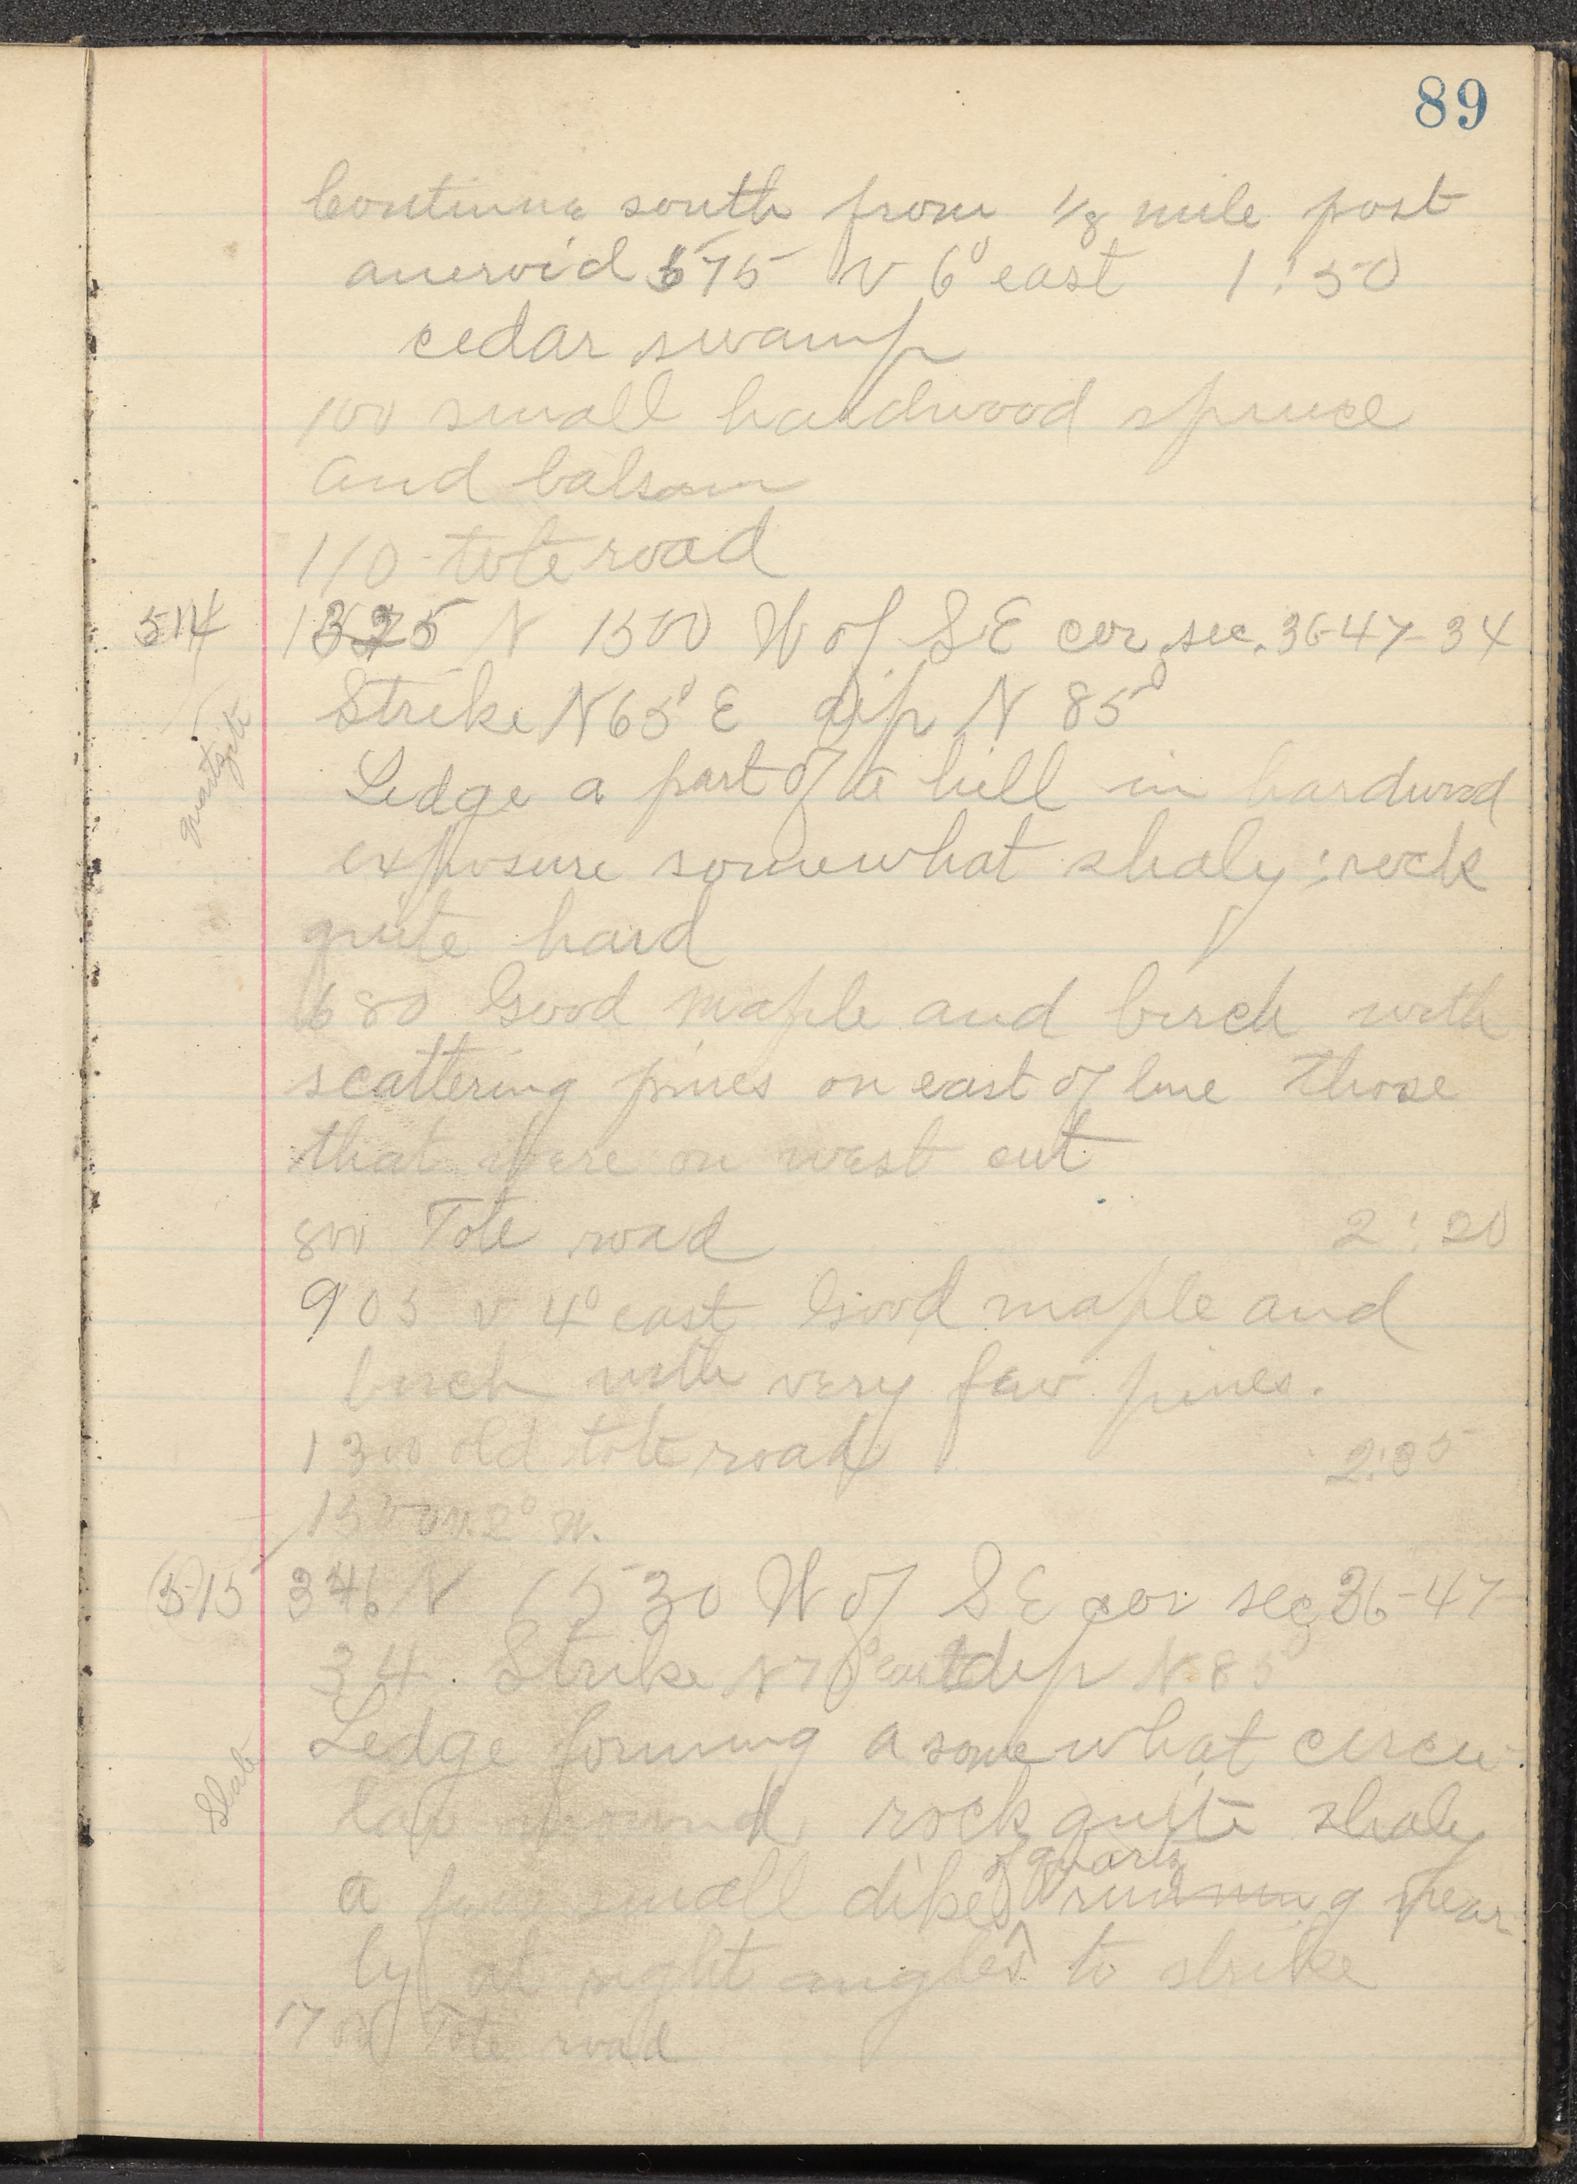 89
Continue south from 1/8 mile post
aneroid 575 v 6° east 1:50
cedar swamp
100 small hardwood spruce
and balsam
110 tote road
514 1325 N 1500 W of SE cor sec. 36-47-34
Strike N 65° E dip N 85°
quartzite
Ledge a part of a hill in hardwood
exposure somewhat shaly; rock
quite hard
680 Good maple and birch with
scattering pines on east of line those
that were on west cut
800 Tote road 2:20
905 v 4° east Good maple and
birch with very few pines.
1300 old tote road 2:35
1500 v. 2° W.
515 346 N 1530 W of SE cor sec 36-47-
34. Strike N 70° east dip N 85°
Ledge forming a somewhat circu-
Slate
lar mound rock quite shaly
of quartz
a few small dikes running near-
ly at right angles to strike
1700 Tote road